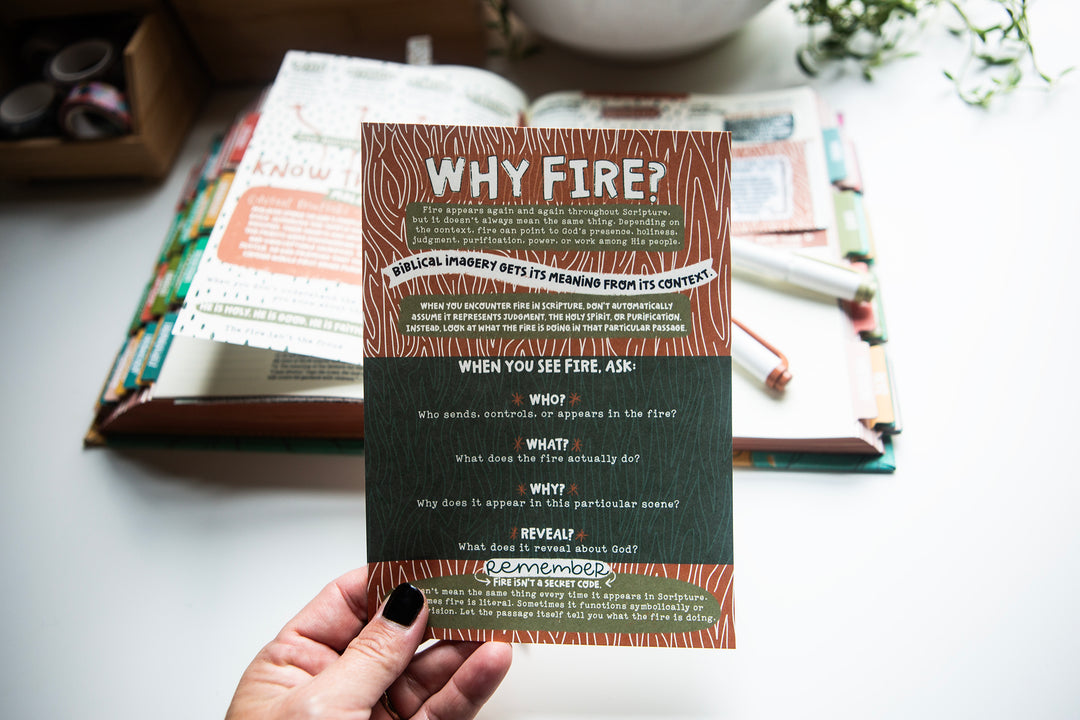 WHY FIRE?
Fire appears again and again throughout Scripture,
but it doesn't always mean the same thing. Depending on
the context, fire can point to God's presence, holiness,
judgment, purification, power, or work among His people.
BIBLICAL IMAGERY GETS ITS MEANING FROM ITS CONTEXT.
WHEN YOU ENCOUNTER FIRE IN SCRIPTURE, DON'T AUTOMATICALLY
ASSUME IT REPRESENTS JUDGMENT, THE HOLY SPIRIT, OR PURIFICATION.
INSTEAD, LOOK AT WHAT THE FIRE IS DOING IN THAT PARTICULAR PASSAGE.
WHEN YOU SEE FIRE, ASK:
WHO?
Who sends, controls, or appears in the fire?
WHAT?
What does the fire actually do?
WHY?
Why does it appear in this particular scene?
REVEAL?
What does it reveal about God?
remember
FIRE ISN'T A SECRET CODE.
mean the same thing every time it appears in Scripture.
fire is literal. Sometimes it functions symbolically or
Let the passage itself tell you what the fire is doing.
KNOW
HE IS HOLY. HE IS GOOD. HE IS
The fire isn't the